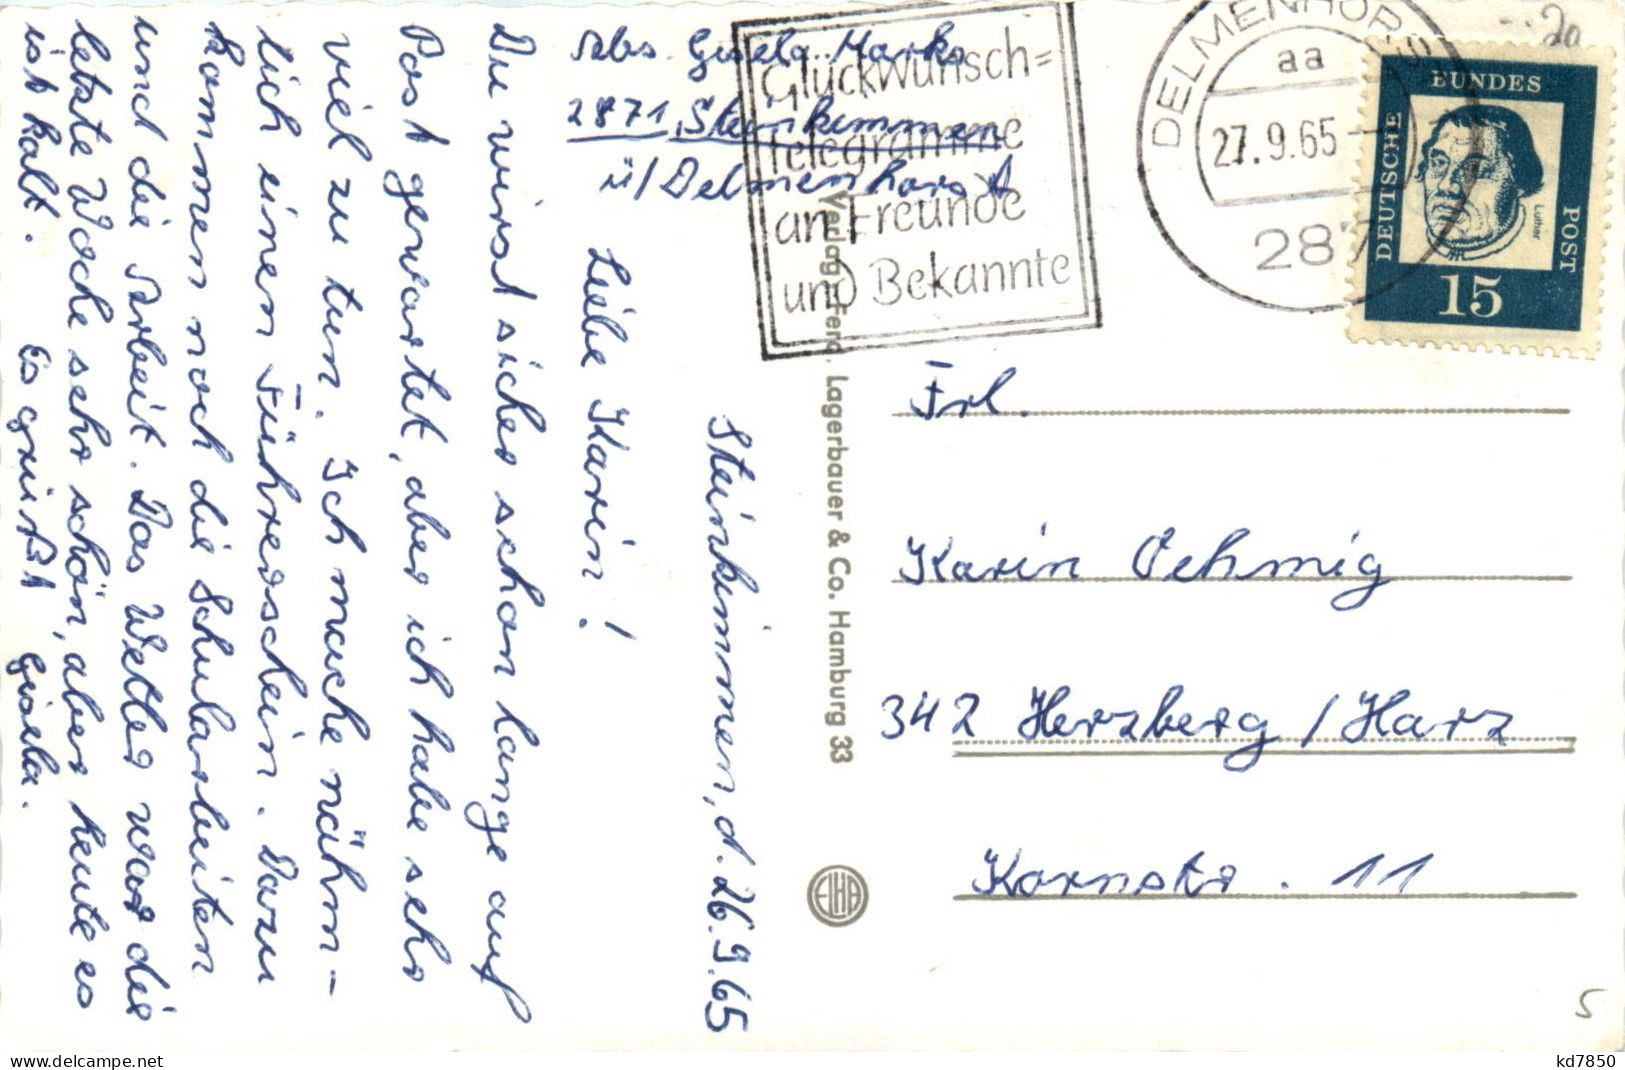 Abs. Gisela Marks
2871 Steinkimmen
ü/Delmenhorst
Glückwunsch=
telegramme
an Freunde
und Bekannte
DELMENHORST
aa
27.9.65
287
20
DEUTSCHE
BUNDES
POST
Luther
15
Steinkimmen, d. 26.9.65
Liebe Karin!
Du wirst sicher schon lange auf
Post gewartet, aber ich habe sehr
viel zu tun. Ich mache nähm-
lich einen Führerschein. Dazu
kommen noch die Schularbeiten
und die Arbeit. Das Wetter war die
letzte Woche sehr schön, aber heute es
ist kalt. Es grüßt Gisela.
Verlag Ferd. Lagerbauer & Co. Hamburg 33
ELHB
Frl.
Karin Oehmig
342 Herzberg / Harz
Kornstr. 11
5
www.delcampe.net
kd7850